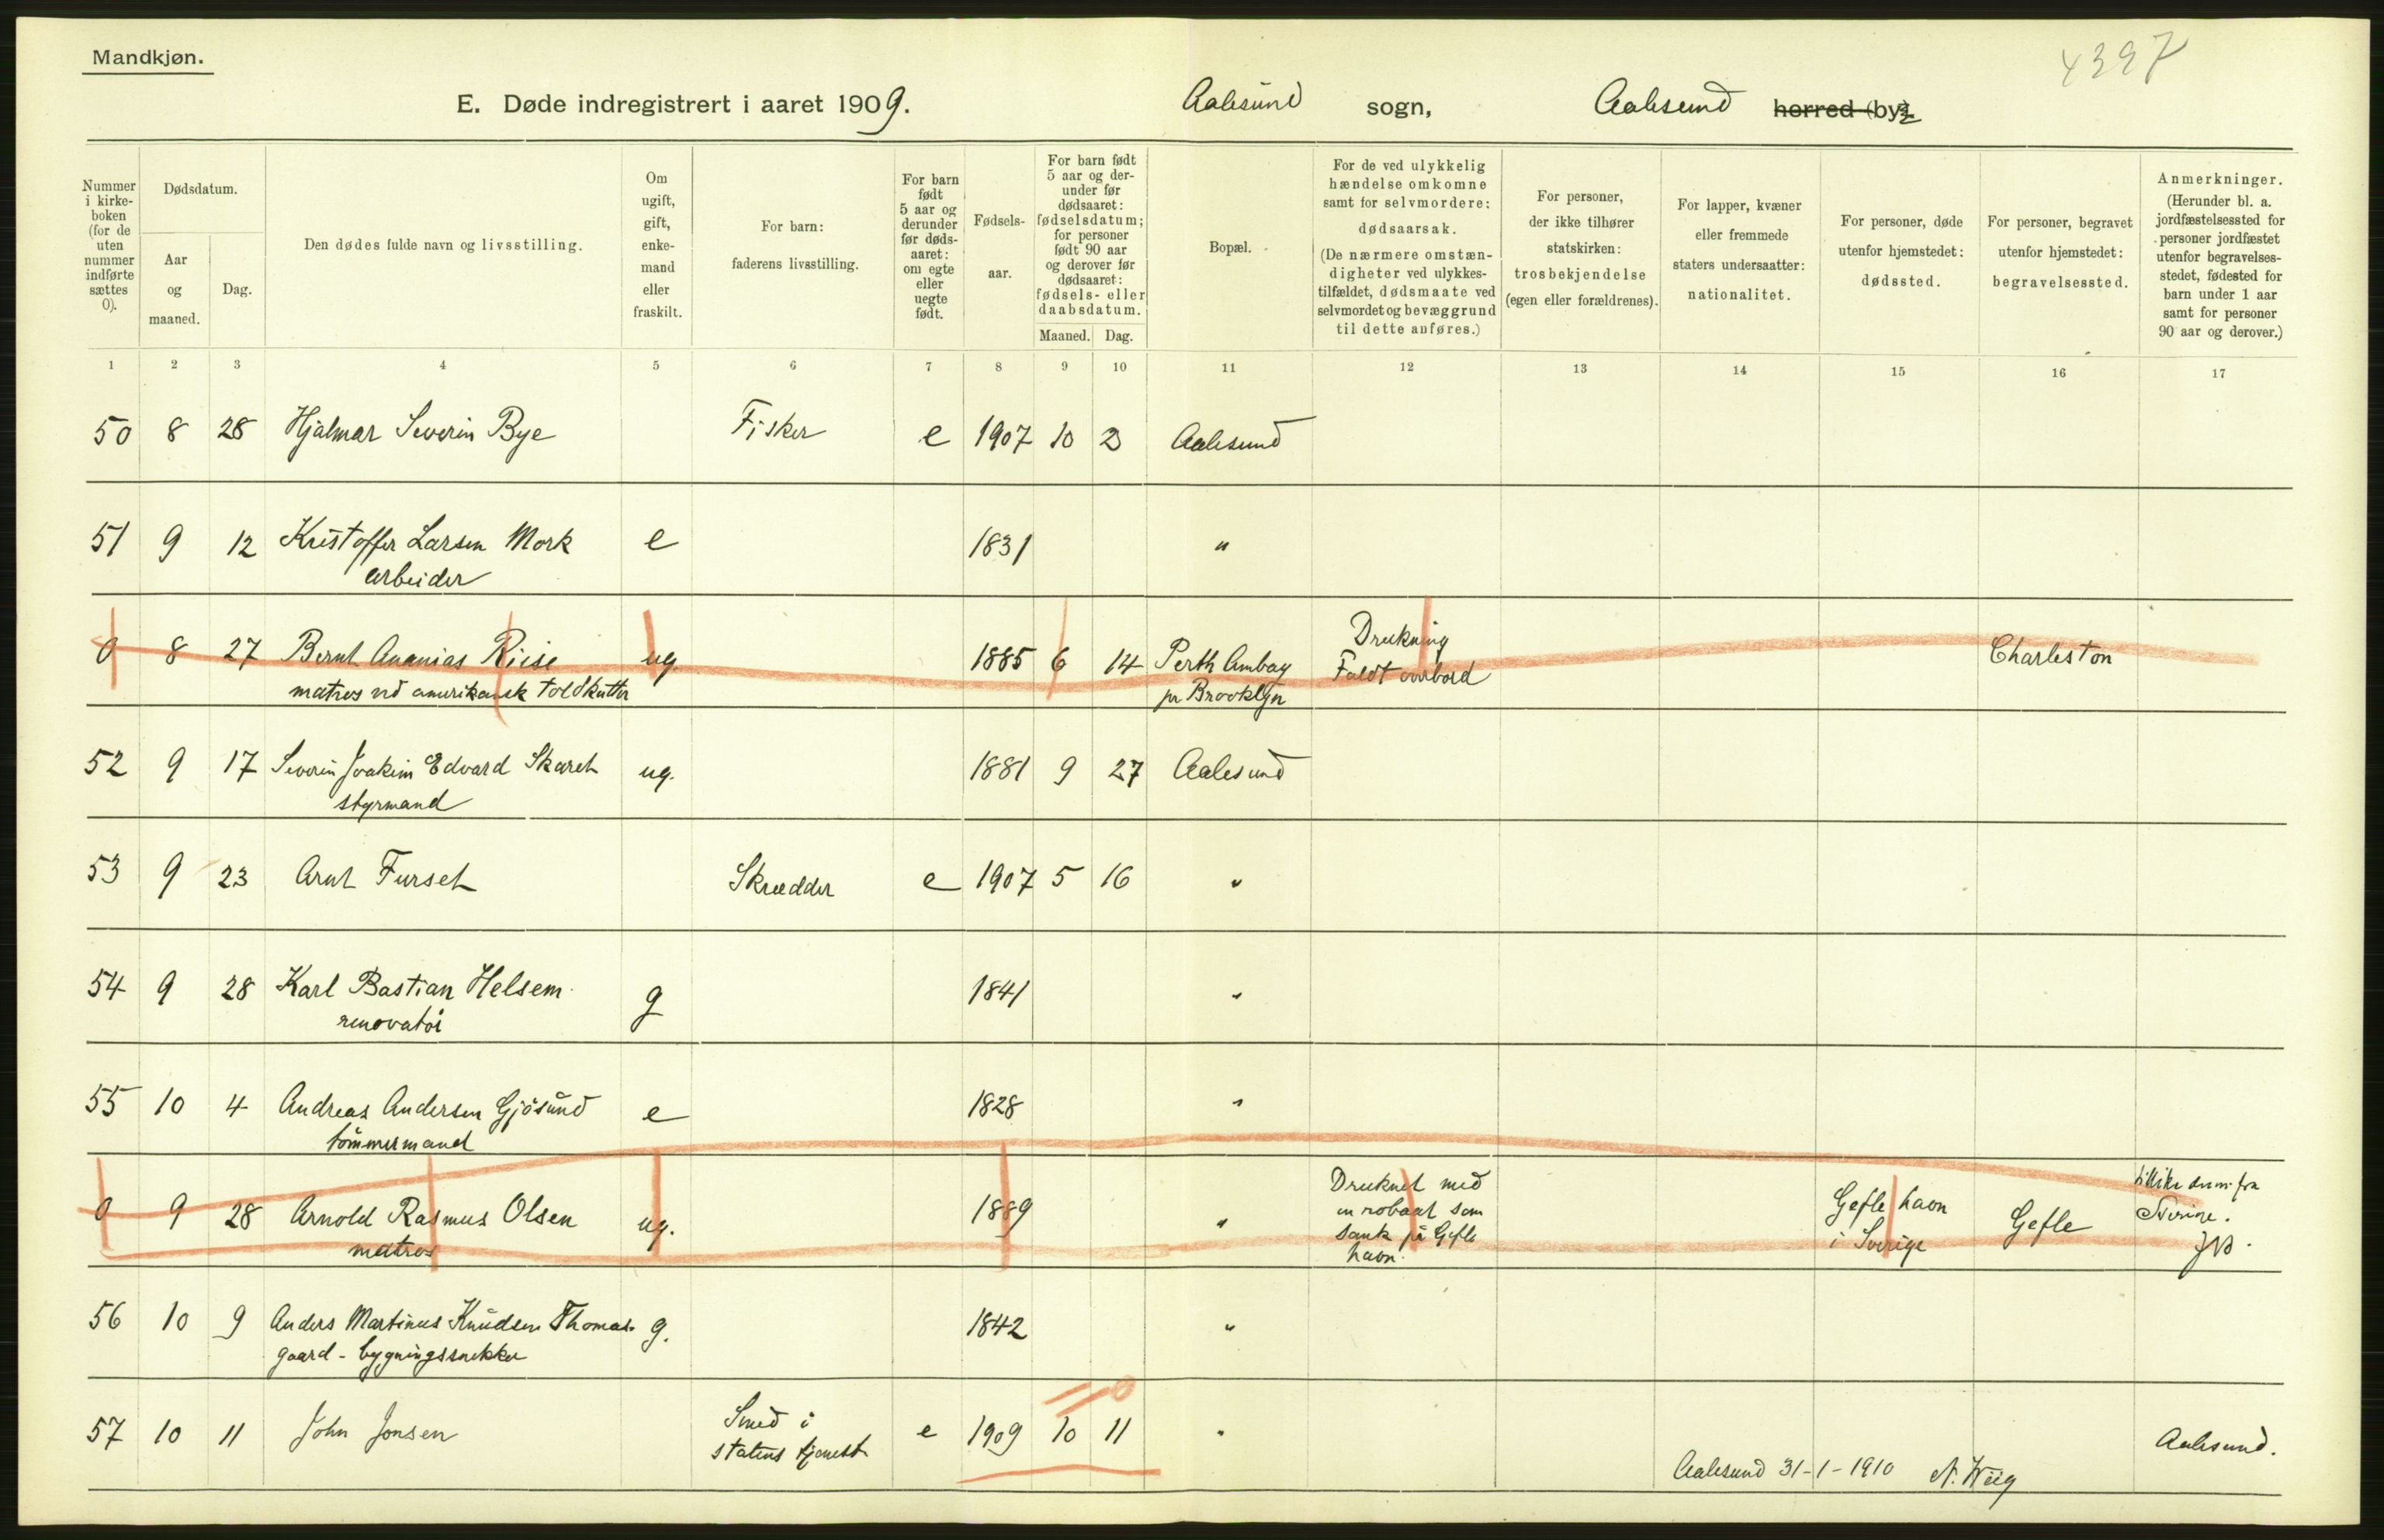 Mandkjøn.
4397
E. Døde indregistrert i aaret 1909. Aalesund sogn, Aalesund herred (by)
Nummer i kirke-boken (for de uten nummer indførte sættes 0).
Dødsdatum.
Aar og maaned.
Dag.
Den dødes fulde navn og livsstilling.
Om ugift, gift, enke-mand eller fraskilt.
For barn: faderens livsstilling.
For barn født 5 aar og derunder før døds-aaret: om egte eller uegte født.
Fødsels-aar.
For barn født 5 aar og der-under før dødsaaret: fødselsdatum; for personer født 90 aar og derover før dødsaaret: fødsels- eller daabsdatum.
Maaned. Dag.
Bopæl.
For de ved ulykkelig hændelse omkomne samt for selvmordere: dødsaarsak. (De nærmere omstæn-digheter ved ulykkes-tilfældet, dødsmaate ved selvmordet og bevæggrund til dette anføres.)
For personer, der ikke tilhører statskirken: trosbekjendelse (egen eller forældrenes).
For lapper, kvæner eller fremmede staters undersaatter: nationalitet.
For personer, døde utenfor hjemstedet: dødssted.
For personer, begravet utenfor hjemstedet: begravelsessted.
Anmerkninger. (Herunder bl. a. jordfæstelsessted for personer jordfæstet utenfor begravelses-stedet, fødested for barn under 1 aar samt for personer 90 aar og derover.)
1 2 3 4 5 6 7 8 9 10 11 12 13 14 15 16 17
50 8 28 Hjalmar Severin Bye Fisker e 1907 10 2 Aalesund
51 9 12 Kristoffer Larsen Mork e 1831 "
arbeider
0 8 27 Bernt Ananias Riise ug. 1885 6 14 Perth Ambay Drukning Charleston
matros ved amerikansk toldkutter pr Brooklyn Faldt overbord
52 9 17 Severin Joakim Edvard Skaret ug. 1881 9 27 Aalesund
styrmand
53 9 23 Arnt Furset Skrædder e 1907 5 16 "
54 9 28 Karl Bastian Helsem g 1841 "
renovatør
55 10 4 Andreas Andersen Gjøsund e 1828 "
tømmermand
0 9 28 Arnold Rasmus Olsen ug. 1889 " Druknet med Gefle havn Gefle
matros en robaat som i Sverige Sverige.
sank på Gefle
havn.
56 10 9 Anders Martinus Knudsen Thomas- g. 1842 "
gaard - bygningssnekker
57 10 11 John Jonsen Smed i e 1909 10 11 " Aalesund.
statens tjeneste
Aalesund 31-1-1910 N. Wiig